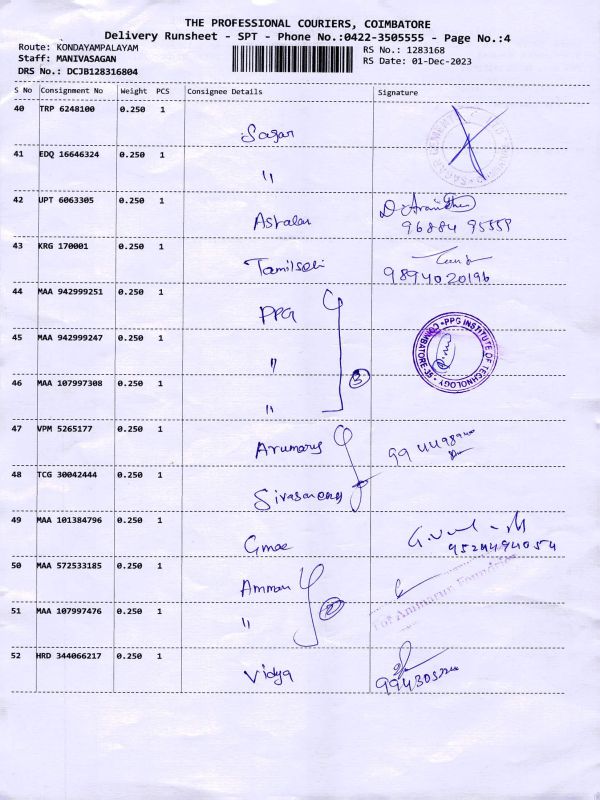 THE PROFESSIONAL COURIERS, COIMBATORE
Delivery Runsheet - SPT - Phone No.:0422-3505555 - Page No.:4
Route: KONDAYAMPALAYAM
Staff: MANIVASAGAN
DRS No.: DCJB128316804
RS No.: 1283168
RS Date: 01-Dec-2023
S No Consignment No Weight PCS Consignee Details Signature
40 TRP 6248100 0.250 1
Sagar
41 EDQ 16646324 0.250 1
"
42 UPT 6063305 0.250 1
96884 95558
43 KRG 170001 0.250 1
9894020196
44 MAA 942999251 0.250 1
PPG
45 MAA 942999247 0.250 1
"
PPG INSTITUTE OF TECHNOLOGY
COIMBATORE-35
3
46 MAA 107997308 0.250 1
"
47 VPM 5265177 0.250 1
48 TCG 30042444 0.250 1
49 MAA 101384796 0.250 1
9524494054
50 MAA 572533185 0.250 1
Amman
2
51 MAA 107997476 0.250 1
"
52 HRD 344066217 0.250 1
Vidya